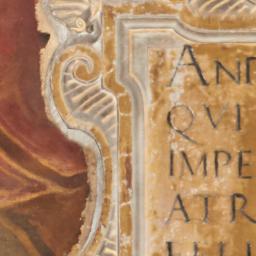 AND
QVI
IMPE
ATR